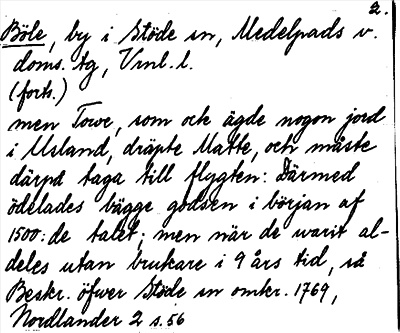 2.
Böle, by i Stöde sn, Medelpads v.
doms. tg, Vrnl. l.
(forts.)
men Towe, som ock ägde nogon jord
i Usland, dräpte Matte, och måste
därpå taga till flygten: Därmed
ödelades bägge godsen i början af
1500:de talet; men när de warit al-
deles utan brukare i 9 års tid, så
Beskr. öfwer Stöde sn omkr. 1769,
Nordlander 2 s. 56